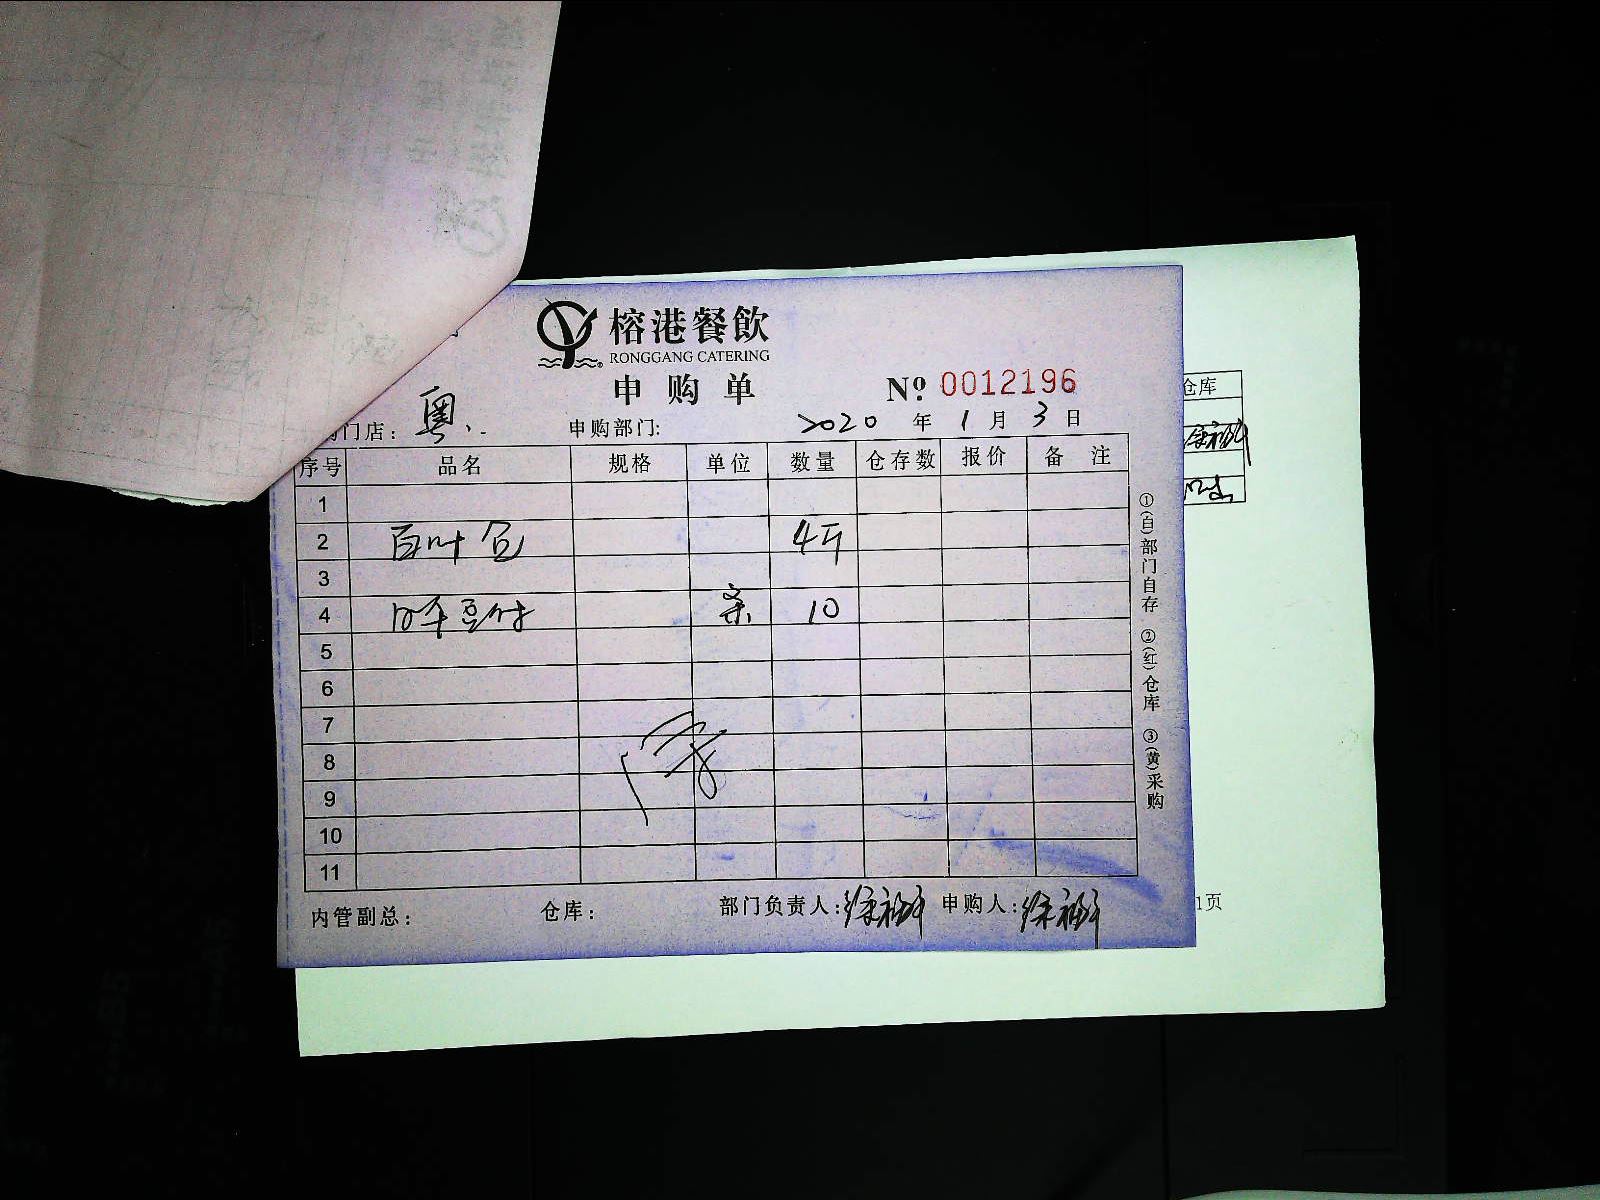 榕港餐飲
RONGGANG CATERING
申购单 Nº 0012196
门店: 粤 申购部门: 2020年1月3日
序号 品名 规格 单位 数量 仓存数 报价 备 注
1
2 百叶包 4斤
3
4 豆付 条 10
5
6
7
8
9
10
11
①(白)部门自存 ②(红)仓库 ③(黄)采购
内管副总: 仓库: 部门负责人: 申购人:
仓库
1页